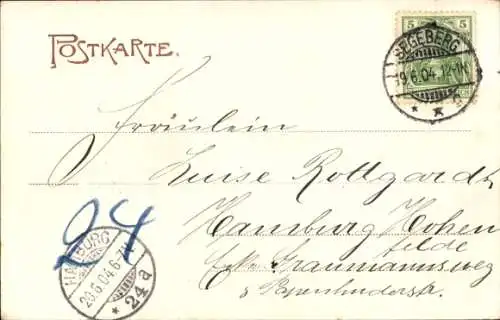 POSTKARTE.
5 5
SEGEBERG
19.6.04.12-1N
* * c
Fräulein
Luise Rottgardt
Hamburg Hohen
felde
Eck Graumannsweg
& Papenhuderstr.
24
HAMBURG
20.6.04.6-7V
* 24a